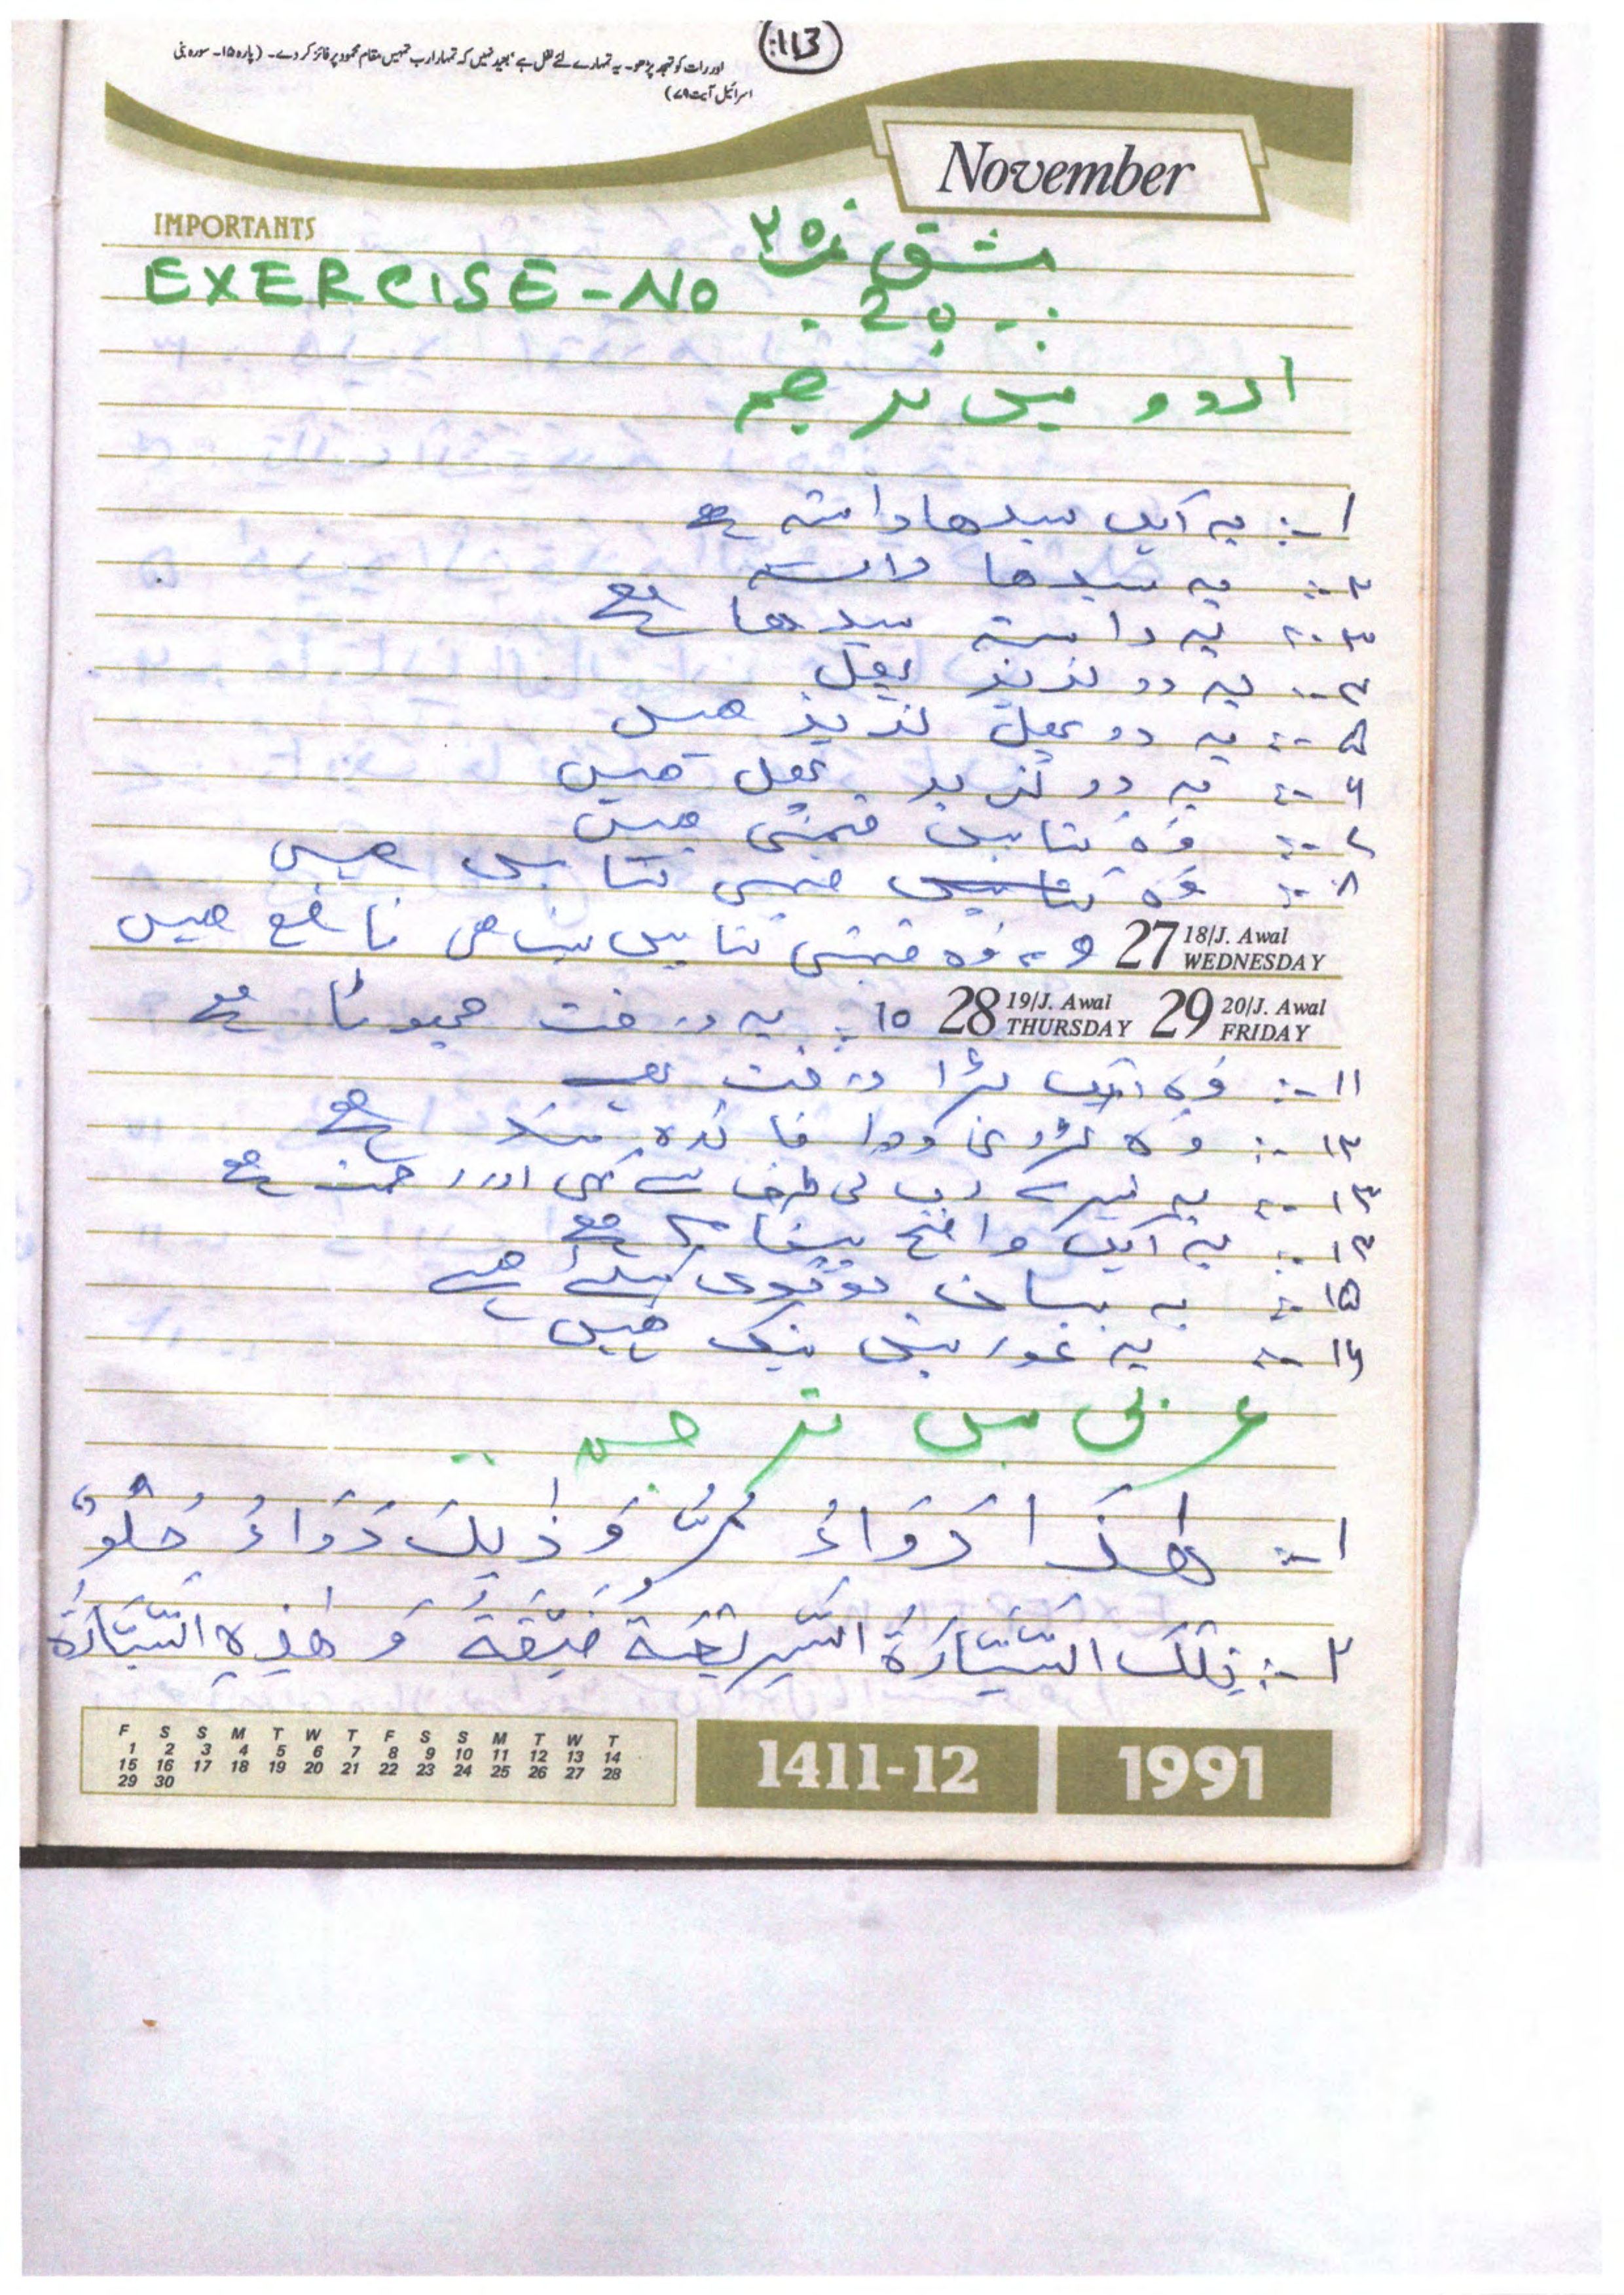 :113
اور رات کو تہجد پڑھو۔ یہ تمہارے لئے نفل ہے، بعید نہیں کہ تمہارا رب تمہیں مقام محمود پر فائز کر دے۔ (پارہ ۱۵۔ سورہ بنی
اسرائیل آیت ۷۹)
November
IMPORTANTS
مشق نمبر ۲۰
EXERCISE - No . 20 .
اردو میں ترجمہ
۱-: یہ ایک سیدھا راستہ ہے
۲-: یہ سیدھا راستہ
۳-: یہ راستہ سیدھا ہے
۴-: یہ دو لذیذ پھل
۵-: یہ دو پھل لذیذ ہیں
۶-: یہ دو لذیذ پھل ہیں
۷-: وہ کتابیں قیمتی ہیں
۸-: وہ قیمتی کتابیں ہیں
27 18/J. Awal WEDNESDAY ۹-: وہ قیمتی کتابیں نافع ہیں
28 19/J. Awal THURSDAY 29 20/J. Awal FRIDAY ۱۰-: یہ درخت چھوٹا ہے
۱۱-: وہ ایک بڑا درخت ہے
۱۲-: وہ کڑوی دوا فائدہ مند ہے
۱۳-: یہ تیرے رب کی طرف سے اور رحمت ہے
۱۴-: یہ ایک واضح پیغام ہے
۱۵-: یہ بیان لوگوں کیلئے ہے
۱۶-: یہ عورتیں نیک ہیں
عربی میں ترجمہ
۱-: هٰذَا دَوَاءٌ مُرٌّ وَ ذٰلِكَ دَوَاءٌ حُلْوٌ
۲-: تِلْكَ السَّيَّارَةُ السَّرِيْعَةُ ضَيِّقَةٌ وَ هٰذِهِ السَّيَّارَةُ
F S S M T W T F S S M T W T
1 2 3 4 5 6 7 8 9 10 11 12 13 14
15 16 17 18 19 20 21 22 23 24 25 26 27 28
29 30
1411-12
1991